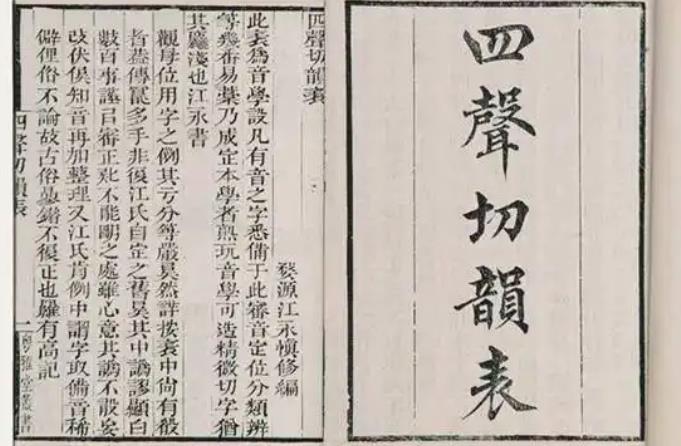 四聲切韻表
四聲切韻表
婺源江永慎修編
此表爲音學設凡有音之字悉備于此審音定位分類辨
等幾番易藁乃成定本學者熟玩音學可造精微切字猶
其麤淺也江永書
觀母位用字之例其亏分等嚴矣然詳按表中尙有殽
者葢傳寫多手非復江氏自定之舊矣其中譌謬顯白
數百事謹已審正不能朙之處雖心意其譌不敢妄
改伏俟知音再加整理又江氏例中謂字取備音稀
僻俚俗不論故古俗不復正也羅有高記
四聲切韻表
一
粵雅堂叢書